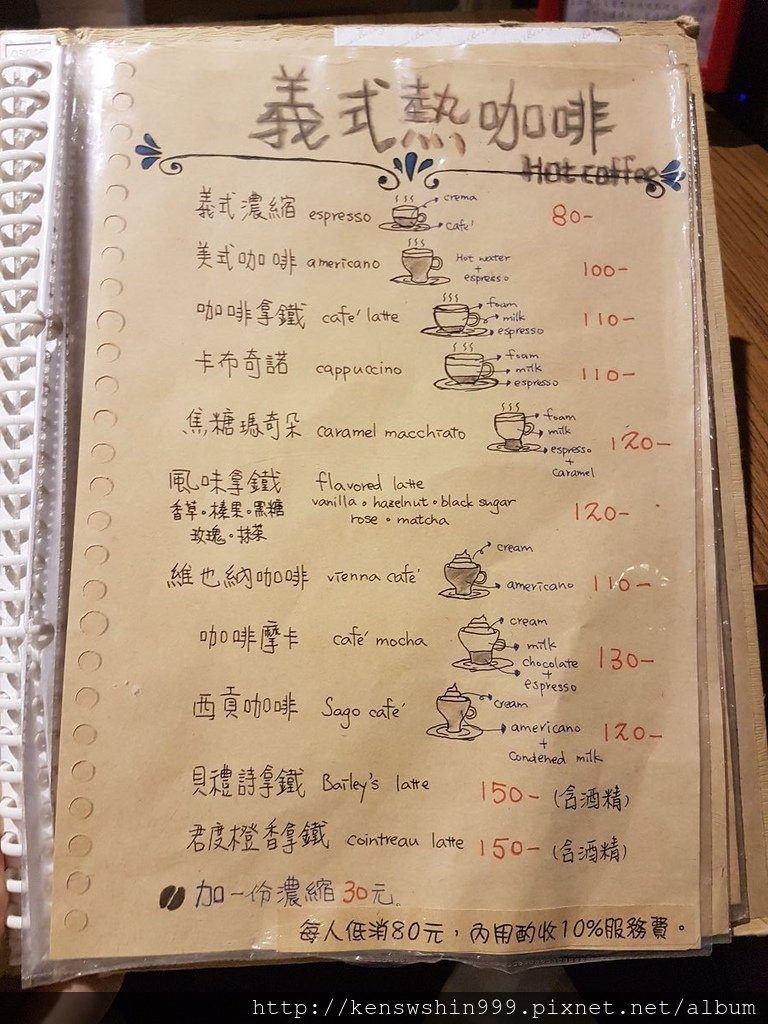 義式熱咖啡
Hot coffee
義式濃縮 espresso crema café 80-
美式咖啡 americano Hot water + espresso 100-
咖啡拿鐵 café latte foam milk espresso 110-
卡布奇諾 cappuccino foam milk espresso 110-
焦糖瑪奇朵 caramel macchiato foam milk espresso + caramel 120-
風味拿鐵 flavored latte
香草。榛果。黑糖 vanilla。hazelnut。black sugar 120-
玫瑰。抹茶 rose。matcha
維也納咖啡 vienna café cream americano 110-
咖啡摩卡 café mocha cream milk chocolate + espresso 130-
西貢咖啡 Sago café cream americano + condened milk 120-
貝禮詩拿鐵 Bailey's latte 150- (含酒精)
君度橙香拿鐵 cointreau latte 150- (含酒精)
加一份濃縮 30元。
每人低消80元，內用酌收10%服務費。
http://kenswshin999.pixnet.net/album